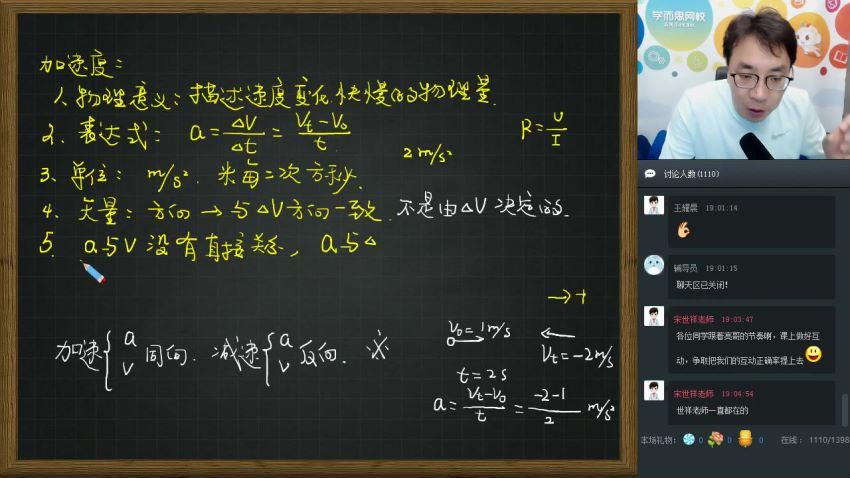 加速度：
1. 物理意义：描述速度变化快慢的物理量.
2. 表达式： a=ΔV/Δt=(Vt-V0)/t
R=U/I
2m/s²
3. 单位： m/s². 米每二次方秒.
4. 矢量：方向→与ΔV方向一致. 不是由ΔV决定的.
5. a与V没有直接关系，a与Δ
→+
加速{a V 同向. 减速{a V 反向.
V0=1m/s
Vt=-2m/s
t=2s
a=(Vt-V0)/t=(-2-1)/2 m/s²
学而思网校
讨论人数(1110)
王耀晨 19:01:14
辅导员 19:01:15
聊天区已关闭!
宋世祥老师 19:03:47
各位同学跟着亮哥的节奏喇，课上做好互
动，争取把我们的互动正确率提上去
宋世祥老师 19:04:54
世祥老师一直都在的
本场礼物： 0 0 0 在线： 1110/1398